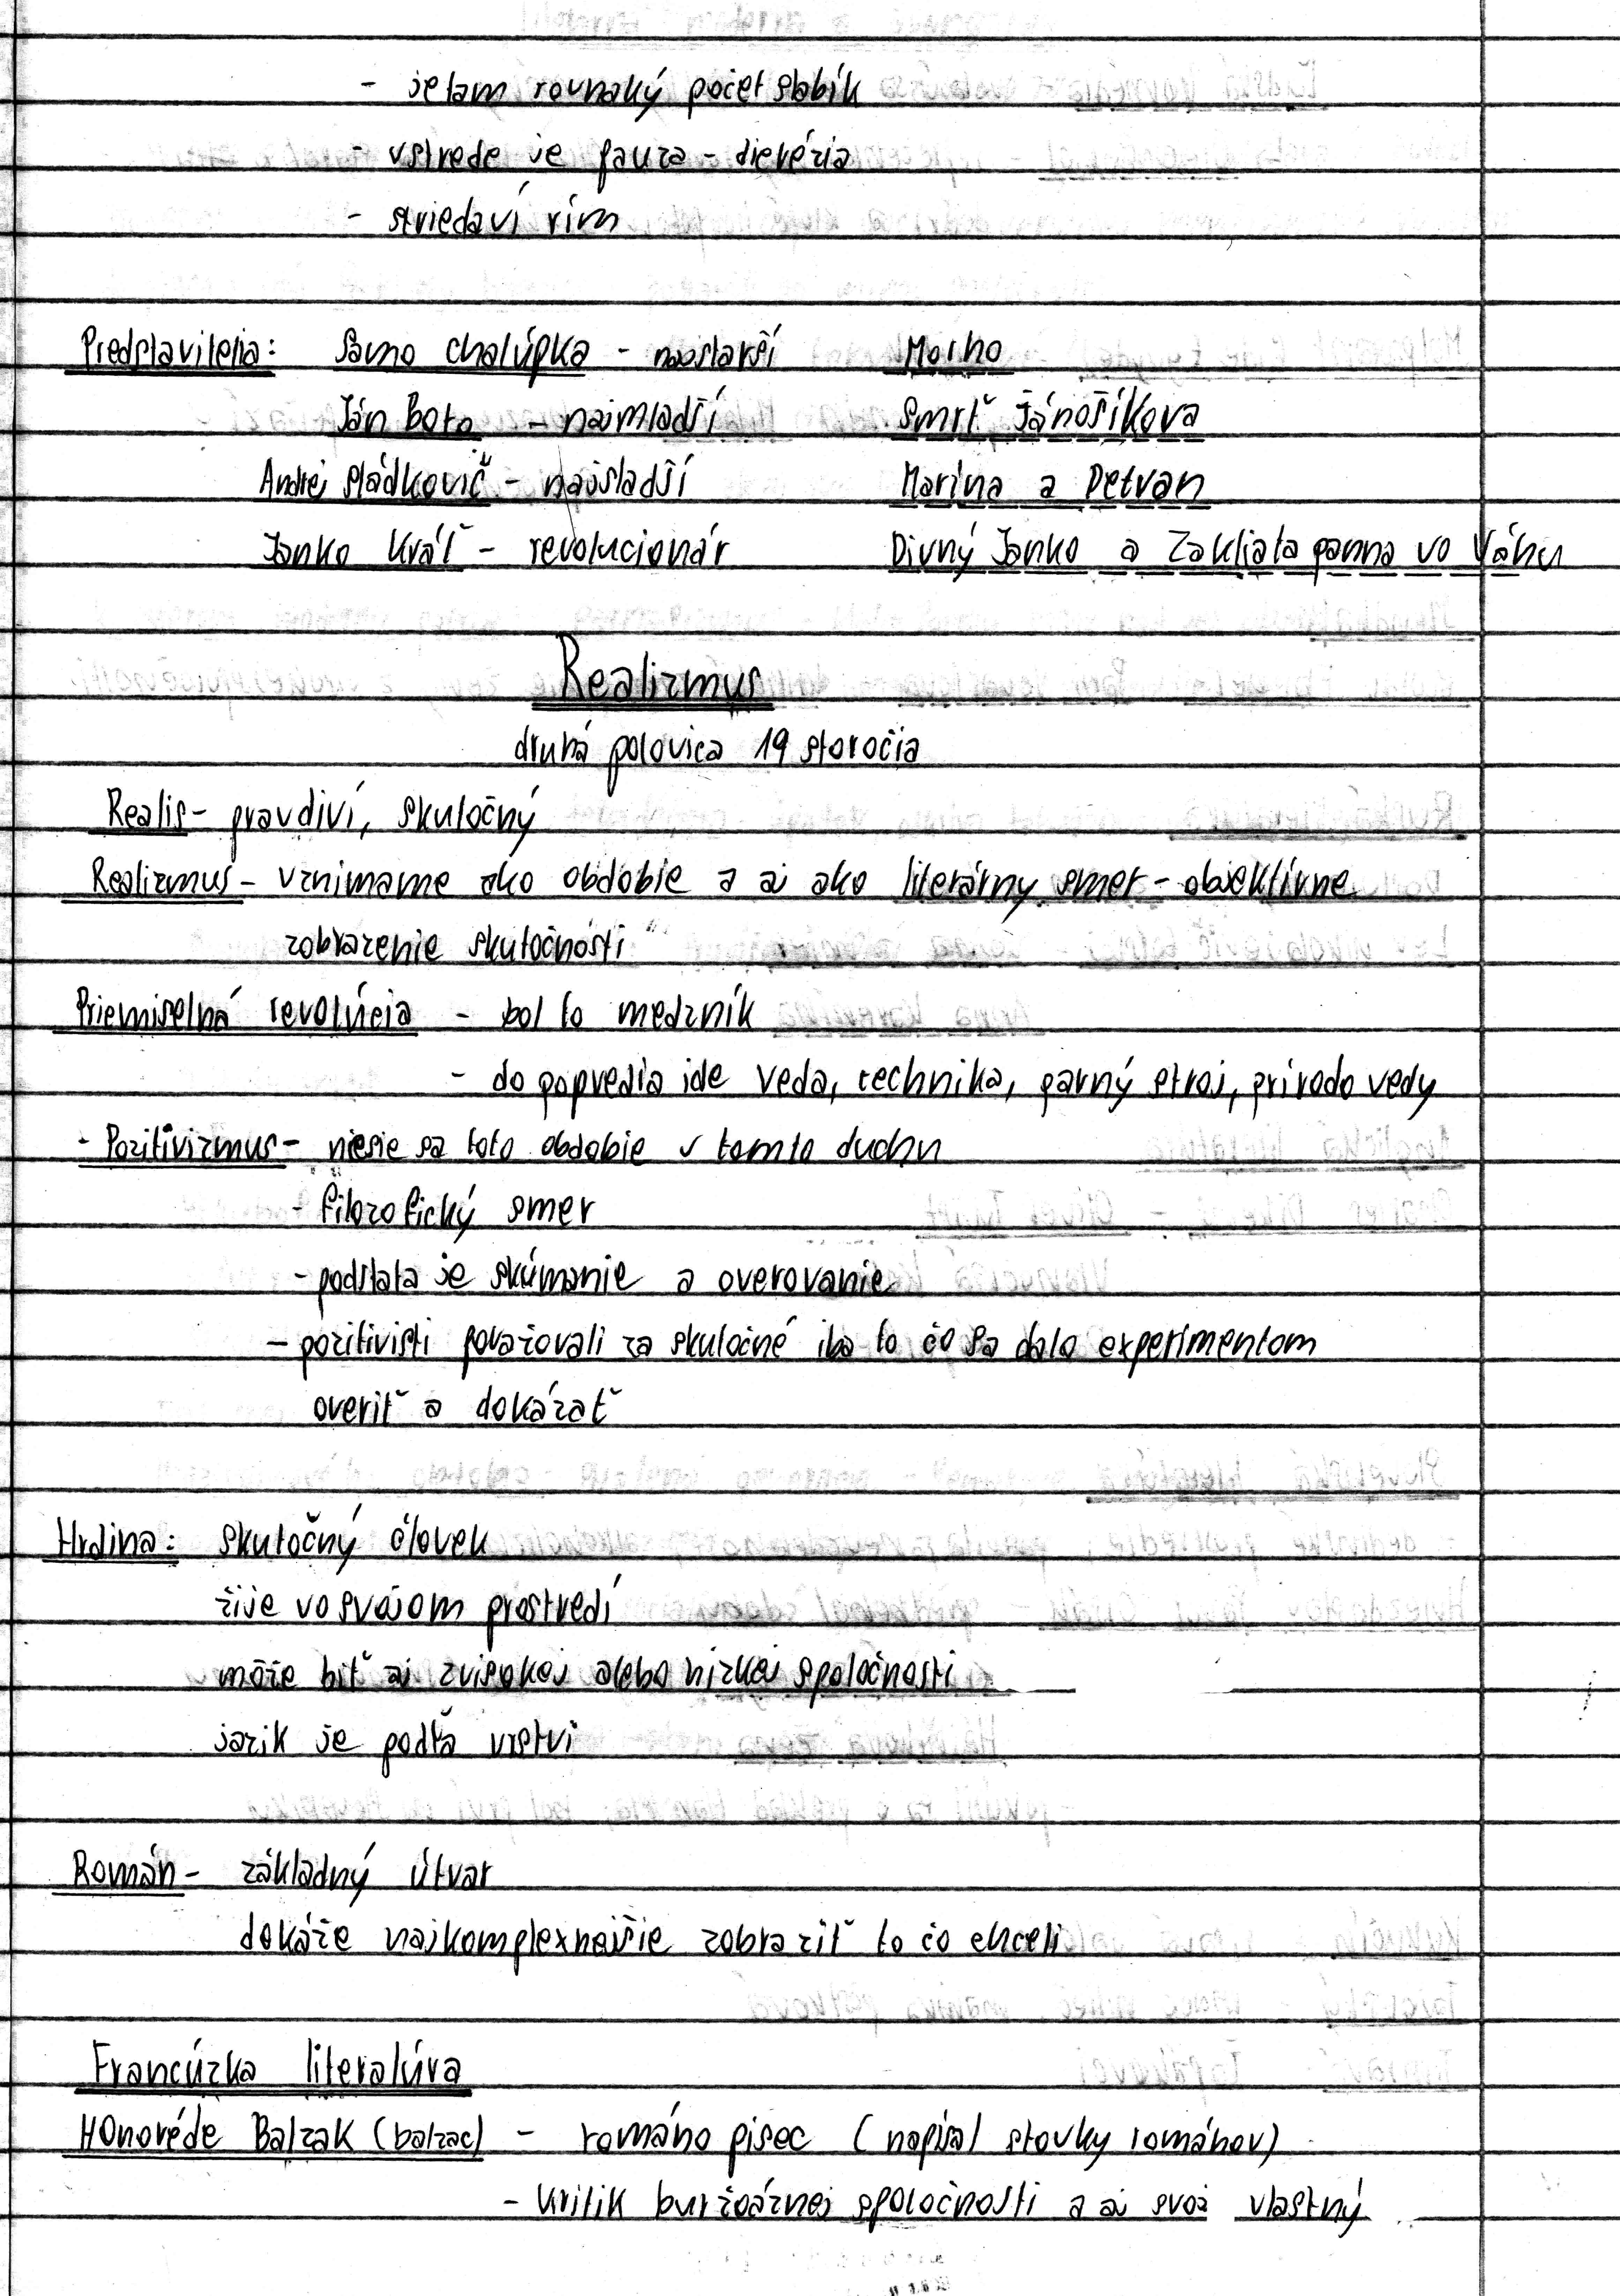 - je tam rovnaký počet slabík
- vstrede je pauza - dierézia
- striedaví rím
Predstavitelia: Samo chalúpka - najstarší Morho
Ján Boto - najmladší Smrť Jánošíkova
Andrej sládkovič - najsladší Marína a Detvan
Janko Kráľ - revolucionár Divný Janko a Zakliata panna vo Váhu
Realizmus
druhá polovica 19 storočia
Realis - pravdiví, skutočný
Realizmus - vznimame ako obdobie a aj ako literárny smer - objektívne
zobrazenie skutočnosti
Priemiselná revolúcia - bol to medzník
- do popredia ide veda, technika, parný stroj, prírodo vedy
- Pozitivizmus - niesie sa toto obdobie v tomto duchu
- filozofický smer
- podstata je skúmanie a overovanie
- pozitivisti považovali za skutočné iba to čo sa dalo experimentom
overiť a dokázať
Hrdina: skutočný človek
žije vo svojom prostredí
môže biť aj zvisokej alebo nízkej spoločnosti
jazik je podľa vrstvi
Román - základný útvar
dokáže najkomplexnejšie zobraziť to čo chceli
Francúzka literatúra
HOnoréde Balzak (balzac) - románo pisec (napísal stovky románov)
- kritik buržoáznej spoločnosti a aj svoj vlastný